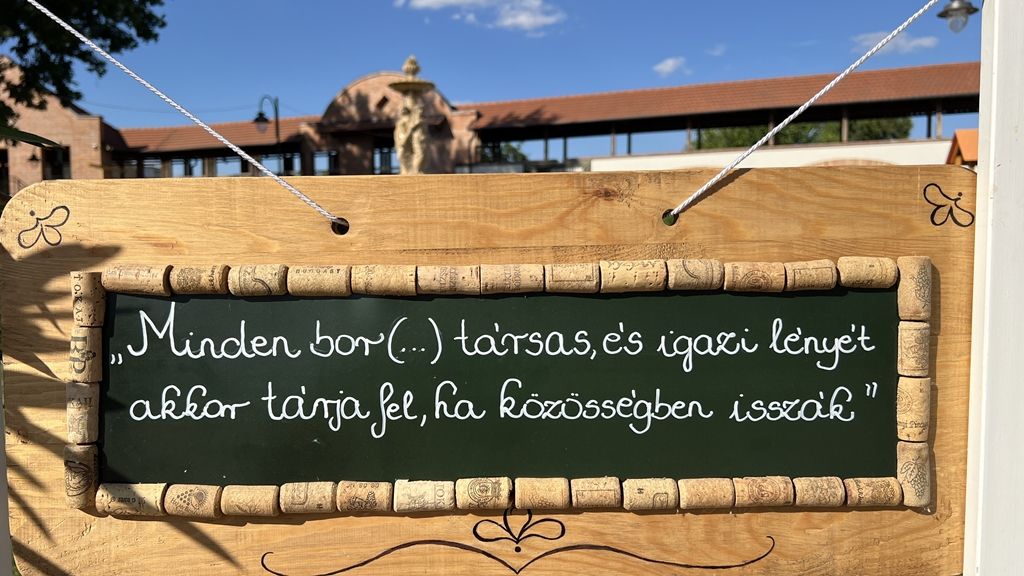 „Minden bor(...) társas, és igazi lényét
akkor tárja fel, ha közösségben isszák”